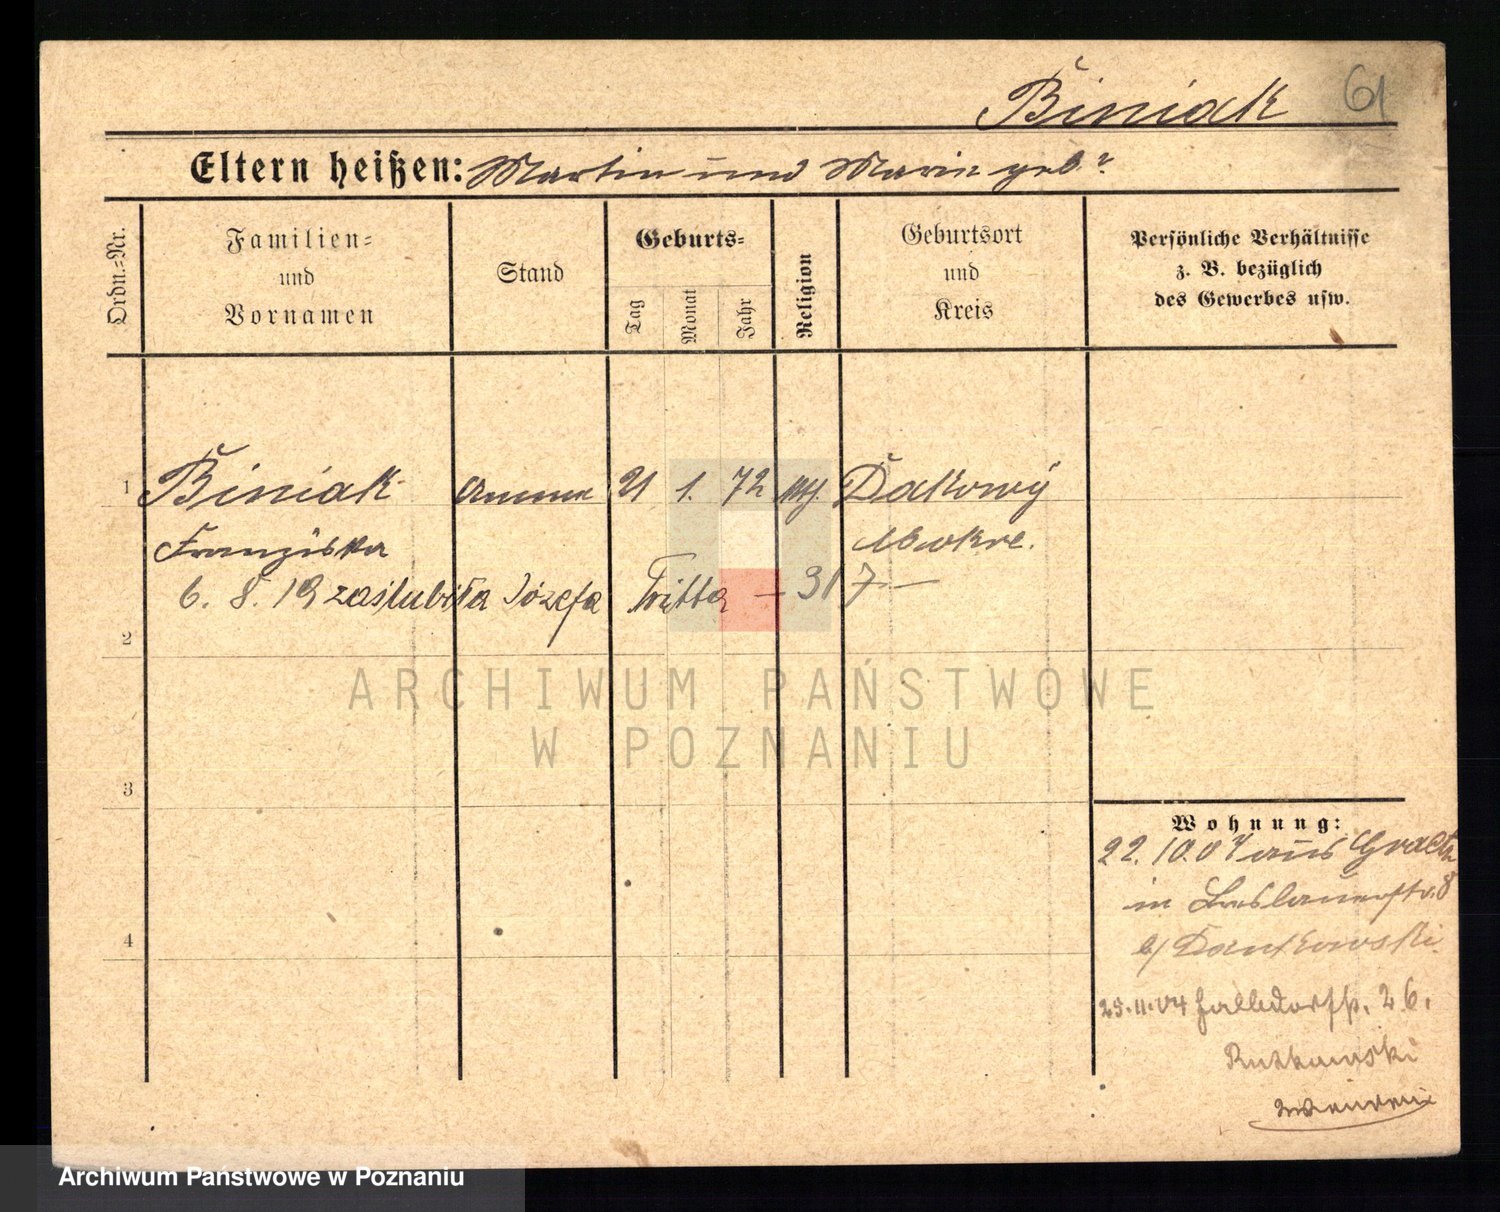 Biniak 61
Eltern heißen: Martin und Marie geb. ?
Ordn.-Nr.
Familien-
und
Vornamen
Stand
Geburts-
Tag
Monat
Jahr
Religion
Geburtsort
und
Kreis
Persönliche Verhältnisse
z. B. bezüglich
des Gewerbes usw.
1 Biniak Amme 21 1. 72 Dakowy
Franziska Mokre.
6. 8. 19 zaślubiła Józefa Witta — 317 —
2
ARCHIWUM PAŃSTWOWE
W POZNANIU
3
Wohnung:
22. 10. 04 aus Graetz
in Breslauerstr. 8
b/ Dankowski
4
25.11.04 Halbdorfstr. 26.
Rutkowski
Archiwum Państwowe w Poznaniu